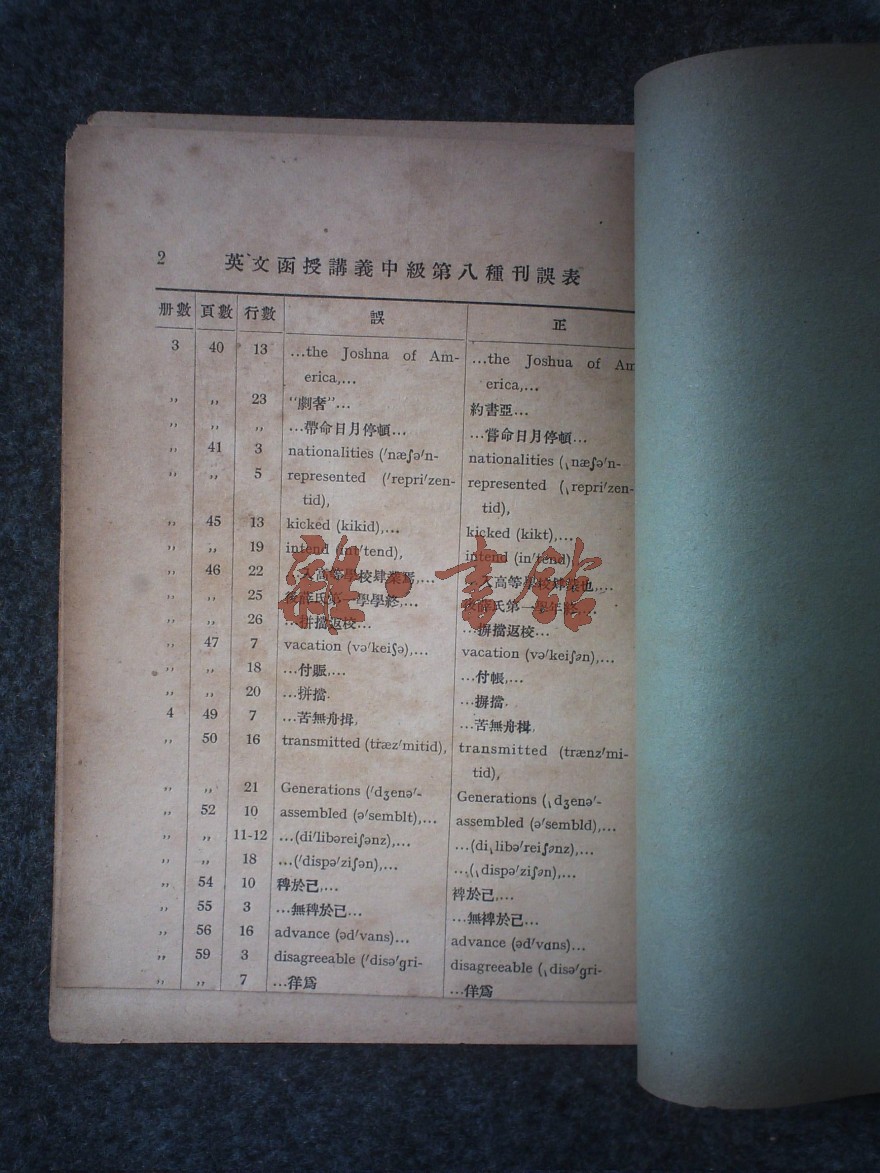 2 英文函授講義中級第八種刊誤表
册數 頁數 行數 誤 正
3 40 13 ...the Joshna of Am- ...the Joshua of Am
erica,... erica,...
,, ,, 23 “劇奢”... 約書亞...
,, ,, ,, ...帶命日月停頓... ...嘗命日月停頓...
,, 41 3 nationalities (ˈnæʃəˈn- nationalities (ˌnæʃəˈn-
,, ,, 5 represented (ˈrepriˈzen- represented (ˌrepriˈzen-
tid), tid),
,, 45 13 kicked (kikid),... kicked (kikt),...
,, ,, 19 intend (intˈtend), intend (inˈtend),
,, 46 22 ...入高等學校肄業焉,... ...入高等學校肄業也,...
,, ,, 25 後薛氏第一學學終,... 後薛氏第一學年終,...
,, ,, 26 ...拼擋返校... ...摒擋返校...
,, 47 7 vacation (vəˈkeiʃə),... vacation (vəˈkeiʃən),...
,, ,, 18 ...付賬,... ...付帳,...
,, ,, 20 ...拼擋. ...摒擋.
4 49 7 ...苦無舟揖, ...苦無舟楫,
,, 50 16 transmitted (træzˈmitid), transmitted (trænzˈmi-
tid),
,, ,, 21 Generations (ˈdʒenəˈ- Generations (ˌdʒenəˈ-
,, 52 10 assembled (əˈsemblt),... assembled (əˈsembld),...
,, ,, 11-12 ...(diˈlibəreiʃənz),... ...(diˌlibəˈreiʃənz),...
,, ,, 18 ...(ˈdispəˈziʃən),... ...(ˌdispəˈziʃən),...
,, 54 10 稗於己,... 裨於己,...
,, 55 3 ...無稗於己... ...無裨於己...
,, 56 16 advance (ədˈvans)... advance (ədˈvɑns)...
,, 59 3 disagreeable (ˈdisəˈgri- disagreeable (ˌdisəˈgri-
,, ,, 7 ...徉爲 ...佯爲
雜·書館